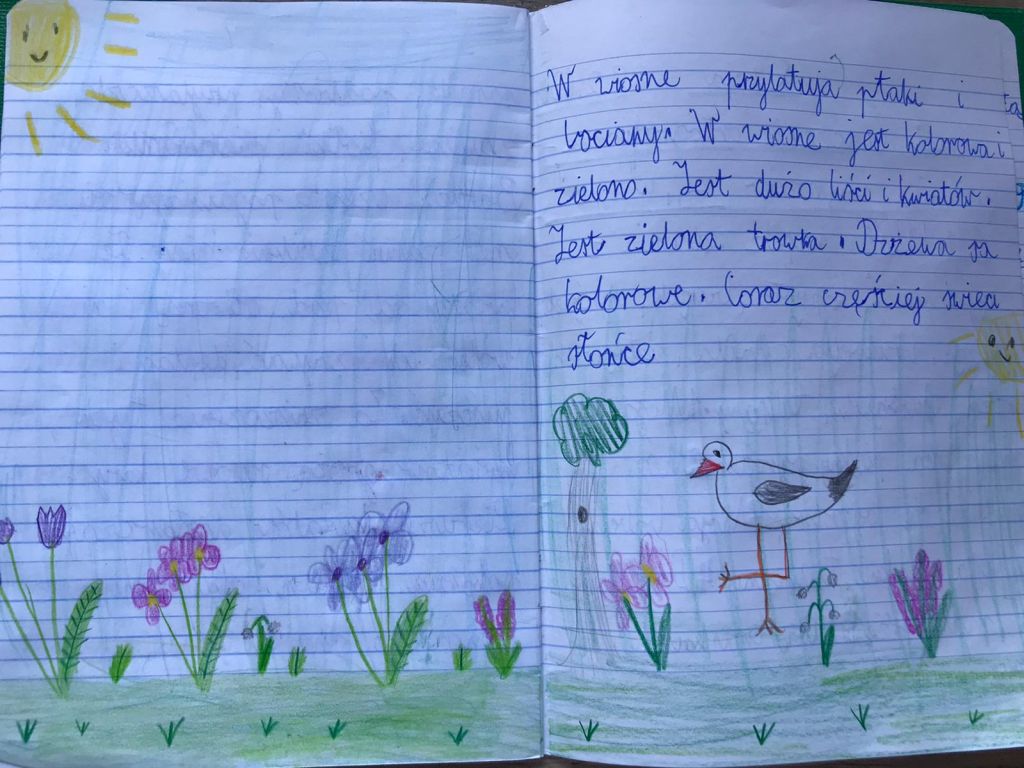 W wiosne przylatują ptaki i
bociany. W wiosne jest kolorowa i
zielono. Jest dużo liści i kwiatów.
Jest zielona trowka. Drzewa sa
kolorowe. Coraz częściej swieci
słońce